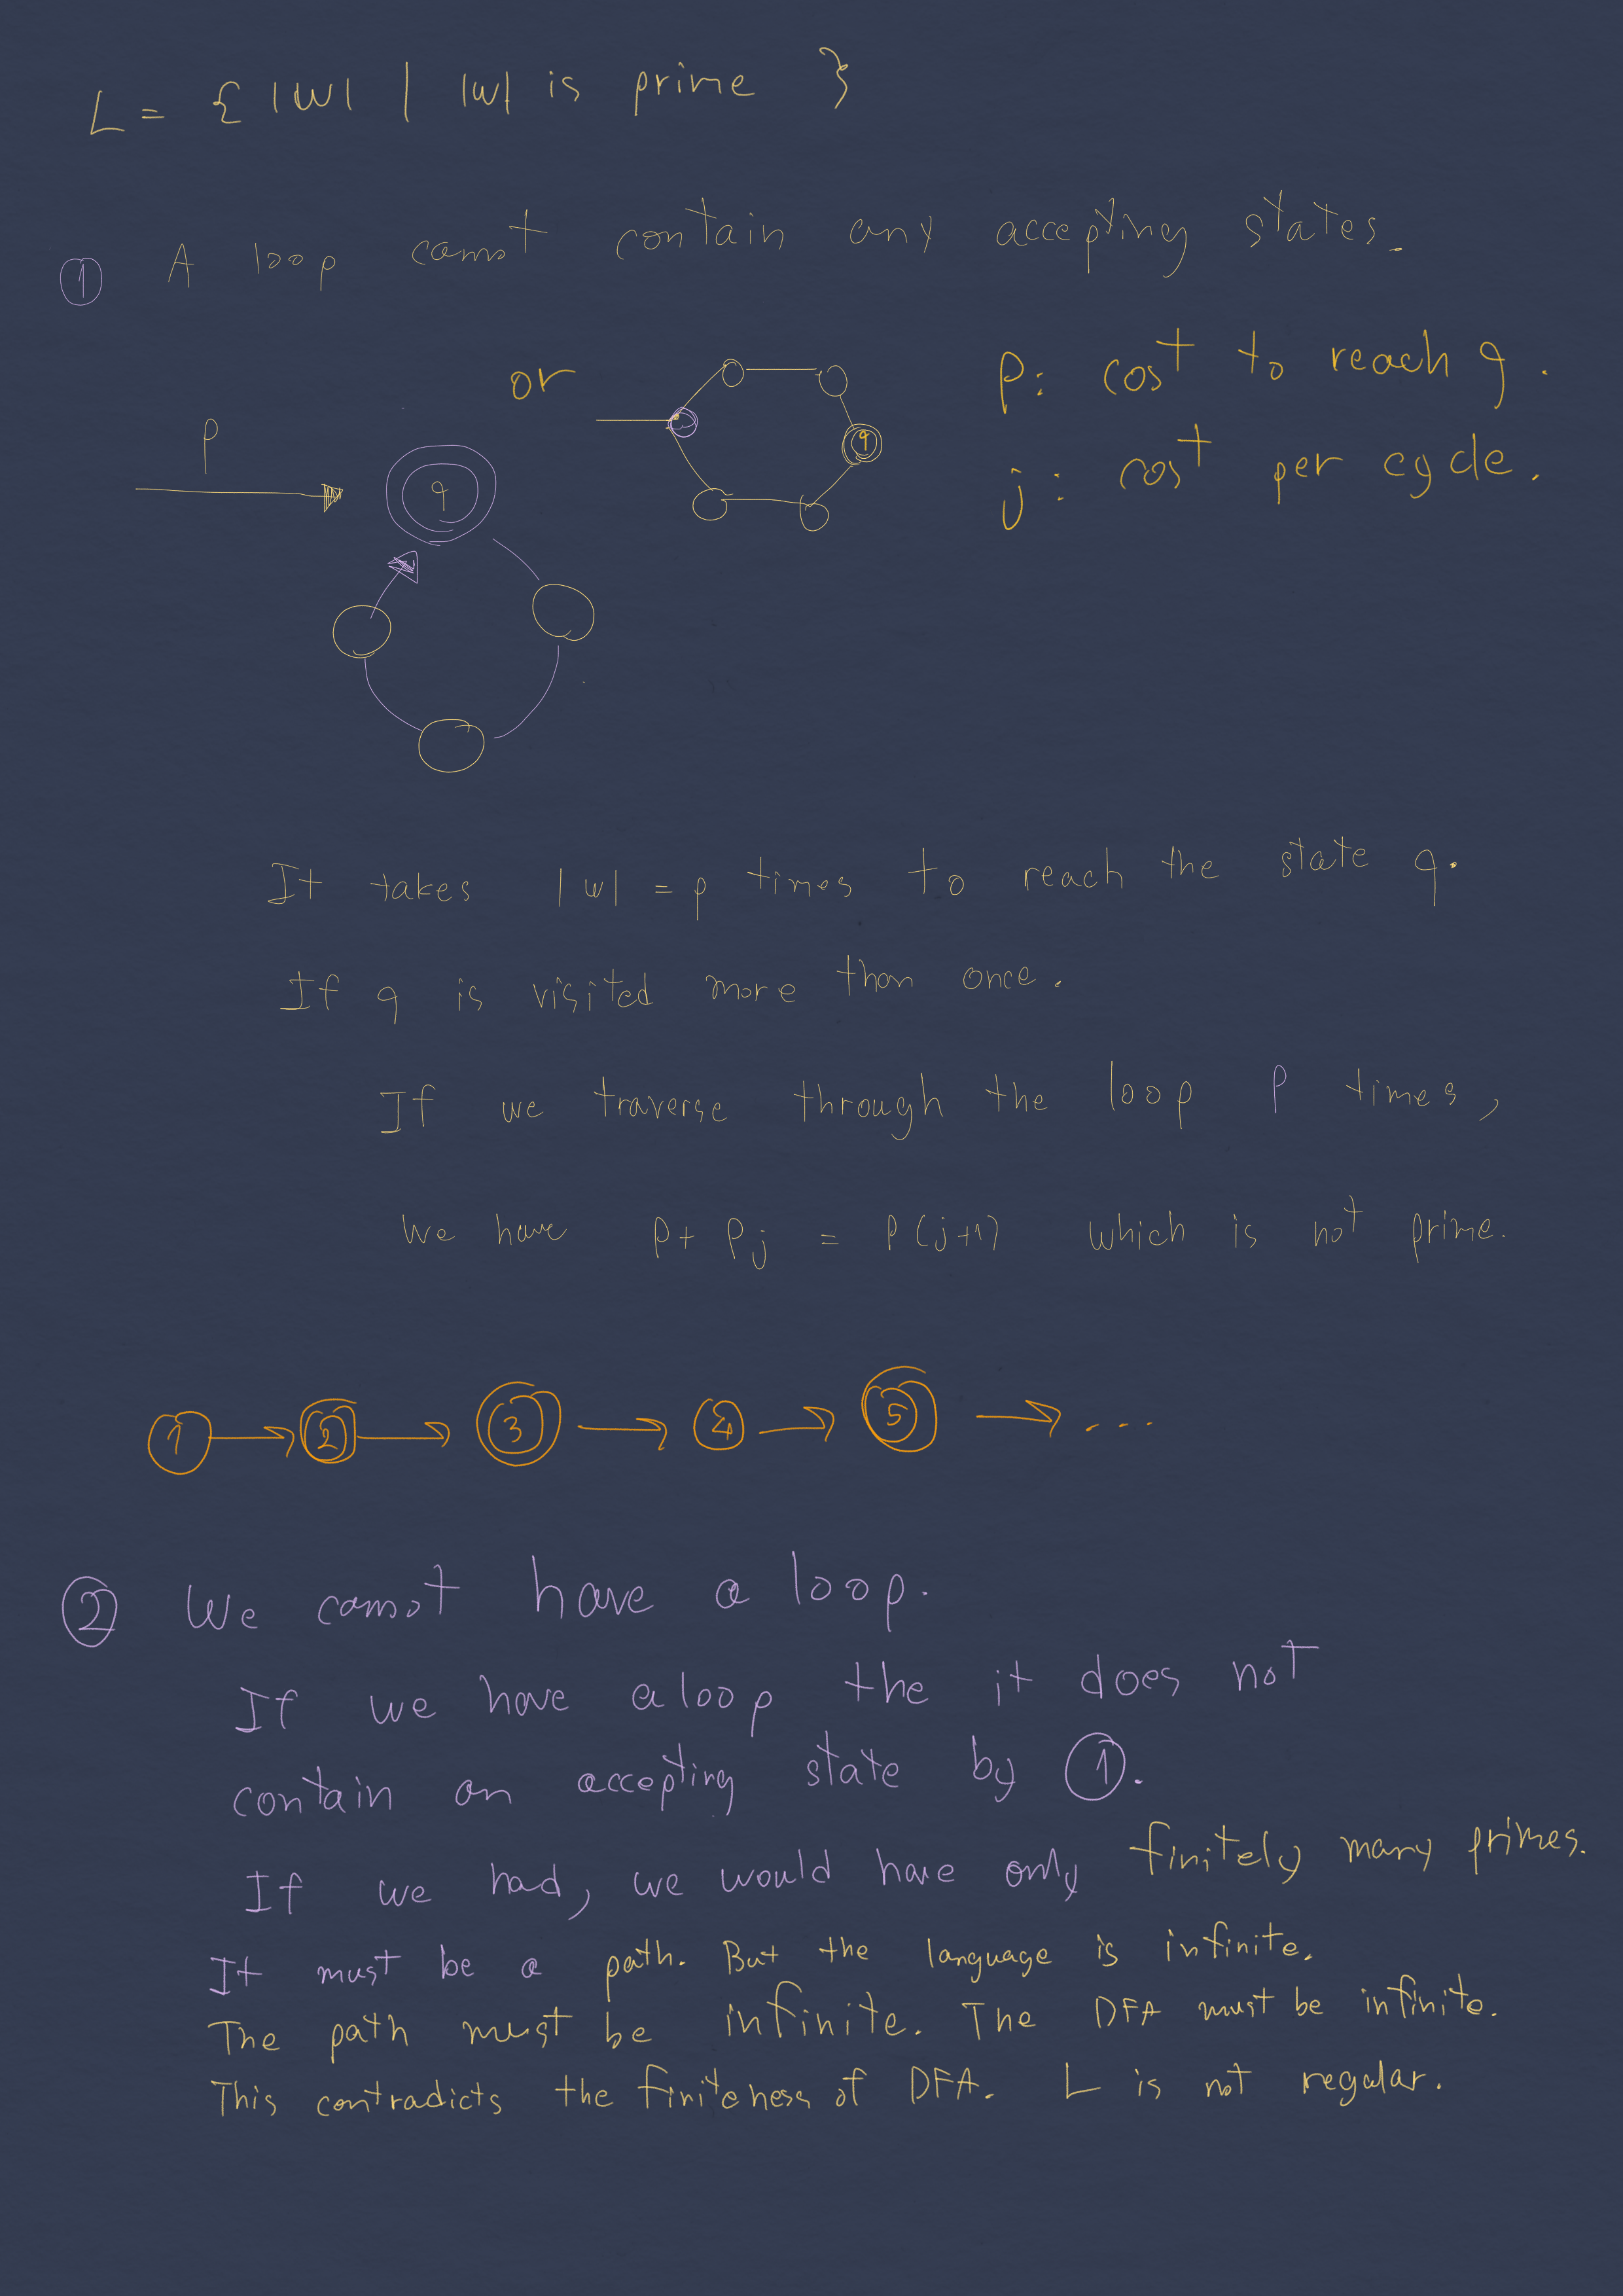 L = { |w| | |w| is prime }
① A loop cannot contain any accepting states.
or
p: cost to reach q.
p
q
q
j: cost per cycle.
It takes |w| = p times to reach the state q.
If q is visited more than once.
If we traverse through the loop p times,
We have p + pj = p(j+1) which is not prime.
1 → 2 → 3 → 4 → 5 → ...
② We cannot have a loop.
If we have a loop the it does not
contain an accepting state by ①.
If we had, we would have only finitely many primes.
It must be a path. But the language is infinite.
The path must be infinite. The DFA must be infinite.
This contradicts the finiteness of DFA. L is not regular.